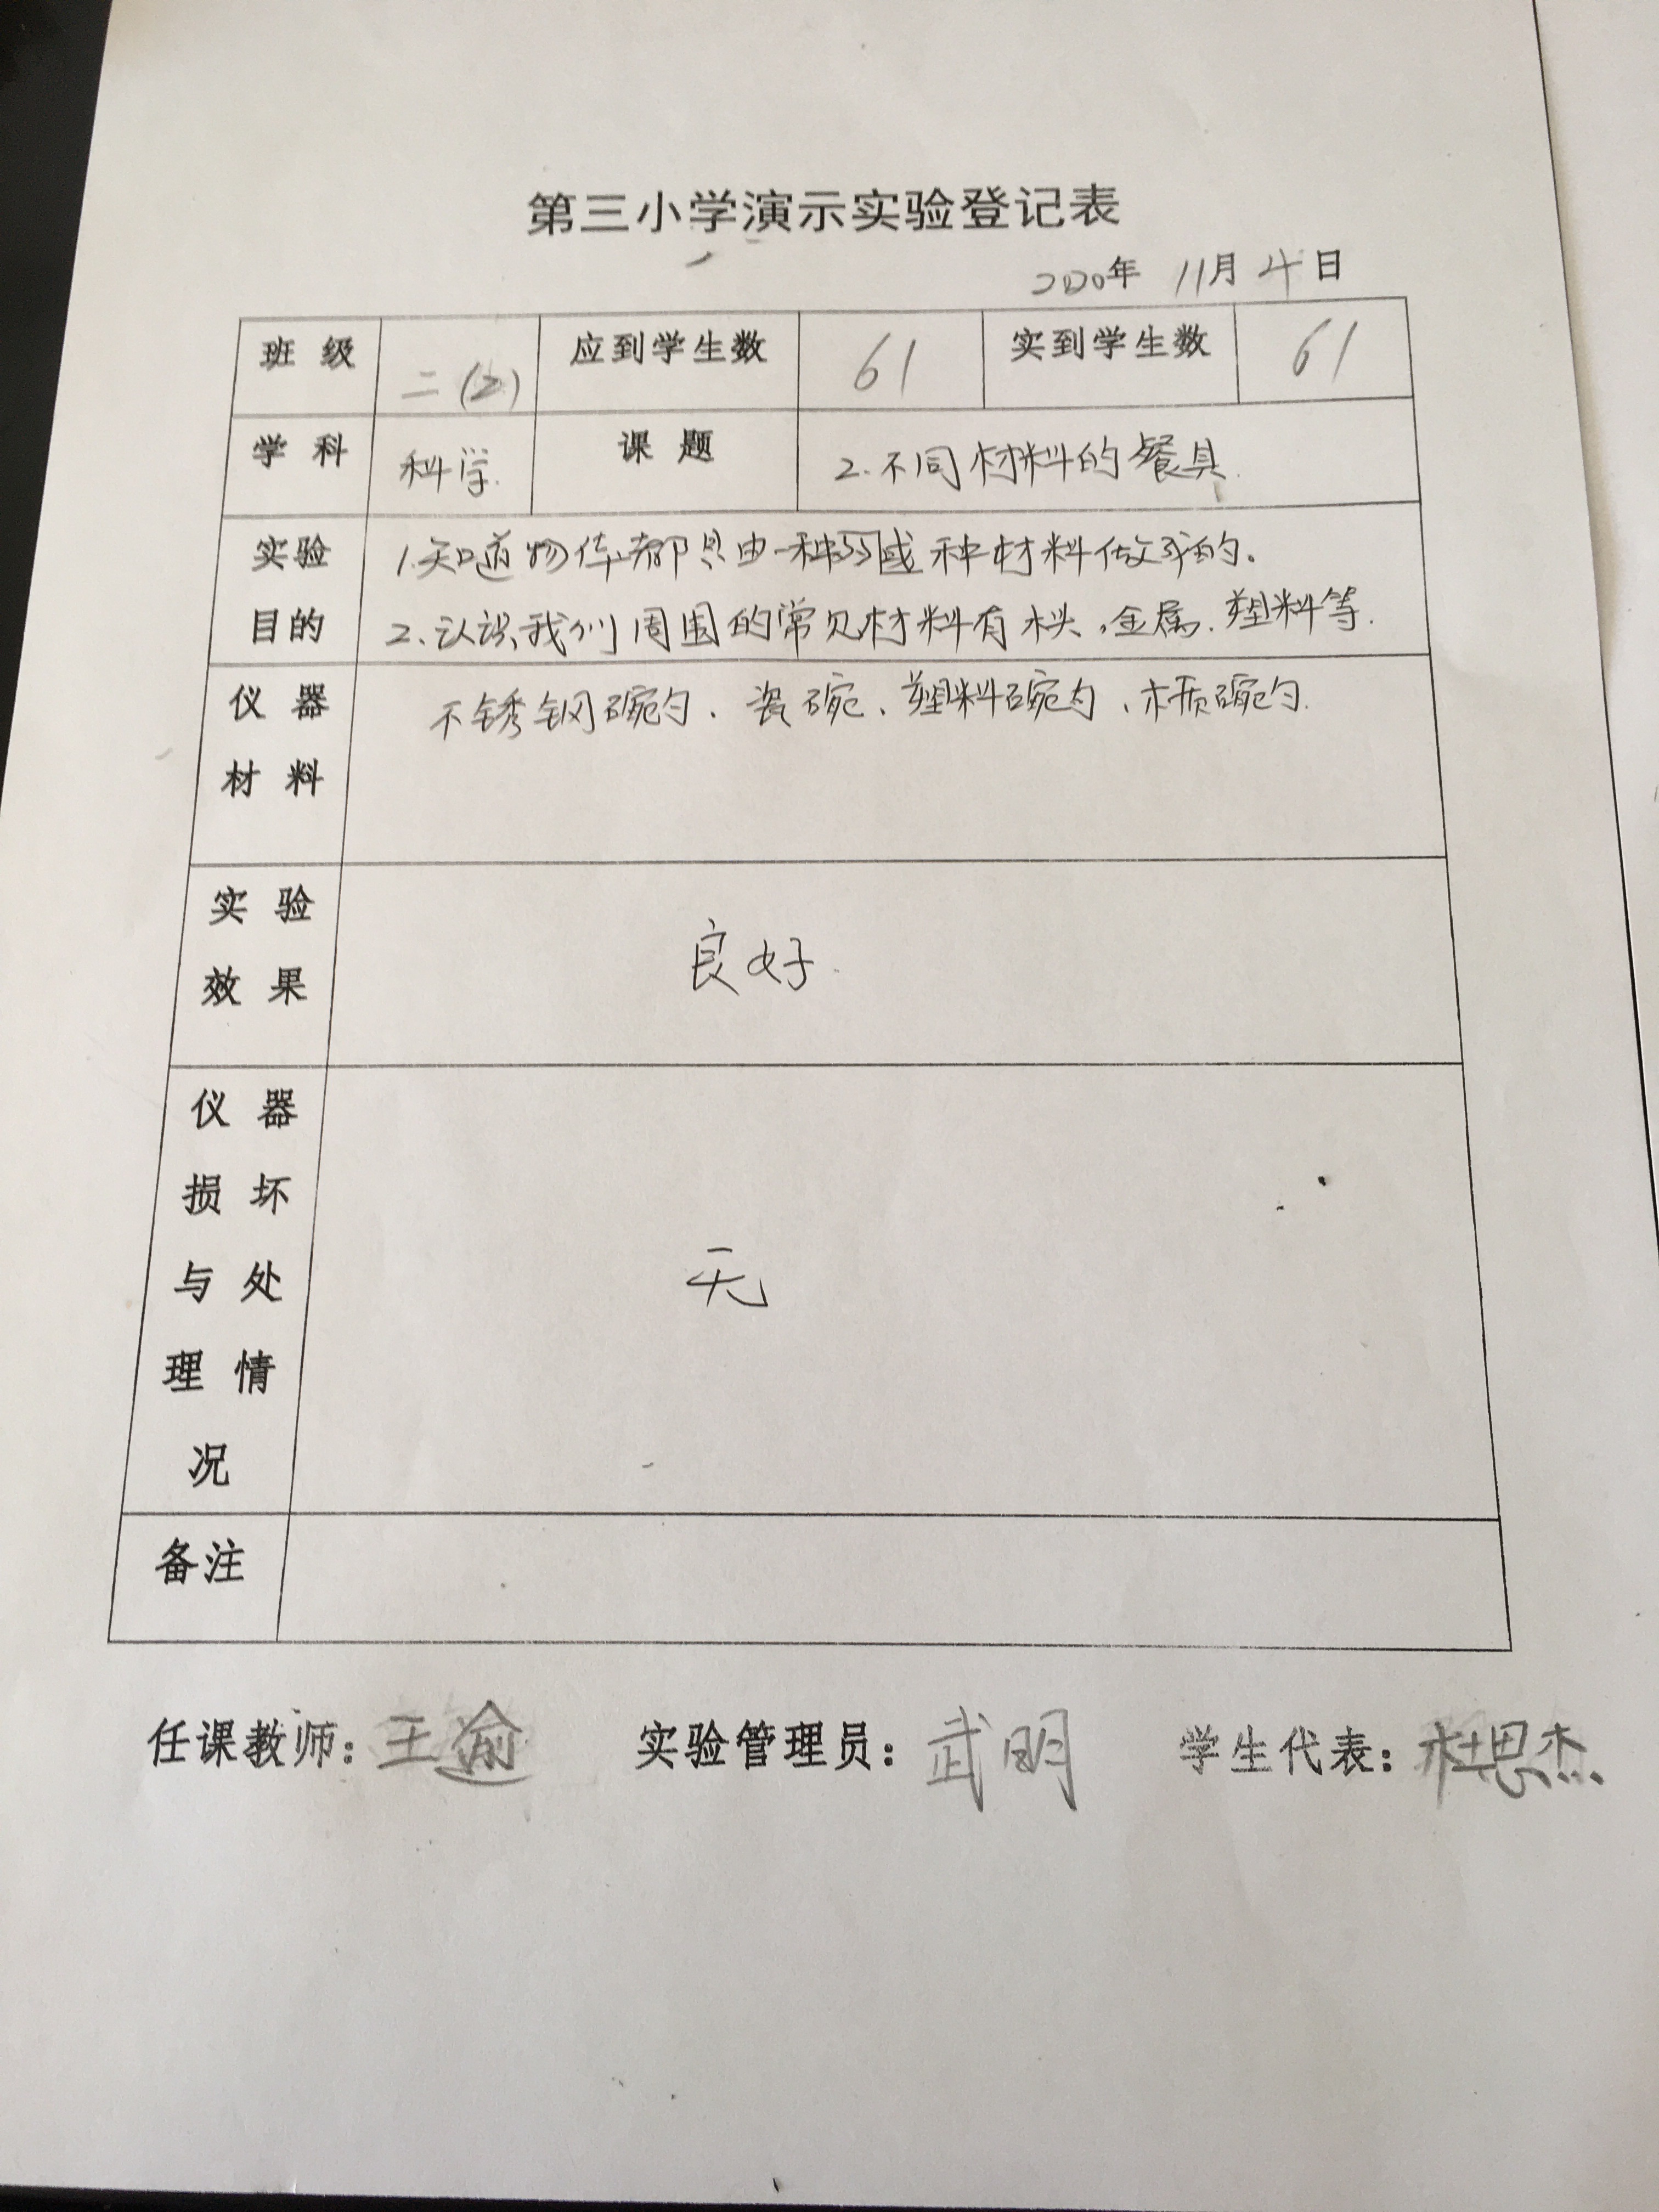 第三小学演示实验登记表
2020年 11月 4日
班 级 二(2) 应到学生数 61 实到学生数 61
学 科 科学. 课 题 2.不同材料的餐具.
实验 1.知道物体都是由一种或 种材料做成的。
目的 2.认识我们周围的常见材料有木头,金属.塑料等.
仪 器 不锈钢碗勺、瓷碗、塑料碗勺、木质碗勺.
材 料
实 验
效 果 良好.
仪 器
损 坏
与 处 无
理 情
况
备注
任课教师: 王 实验管理员: 武明 学生代表: 杜思杰